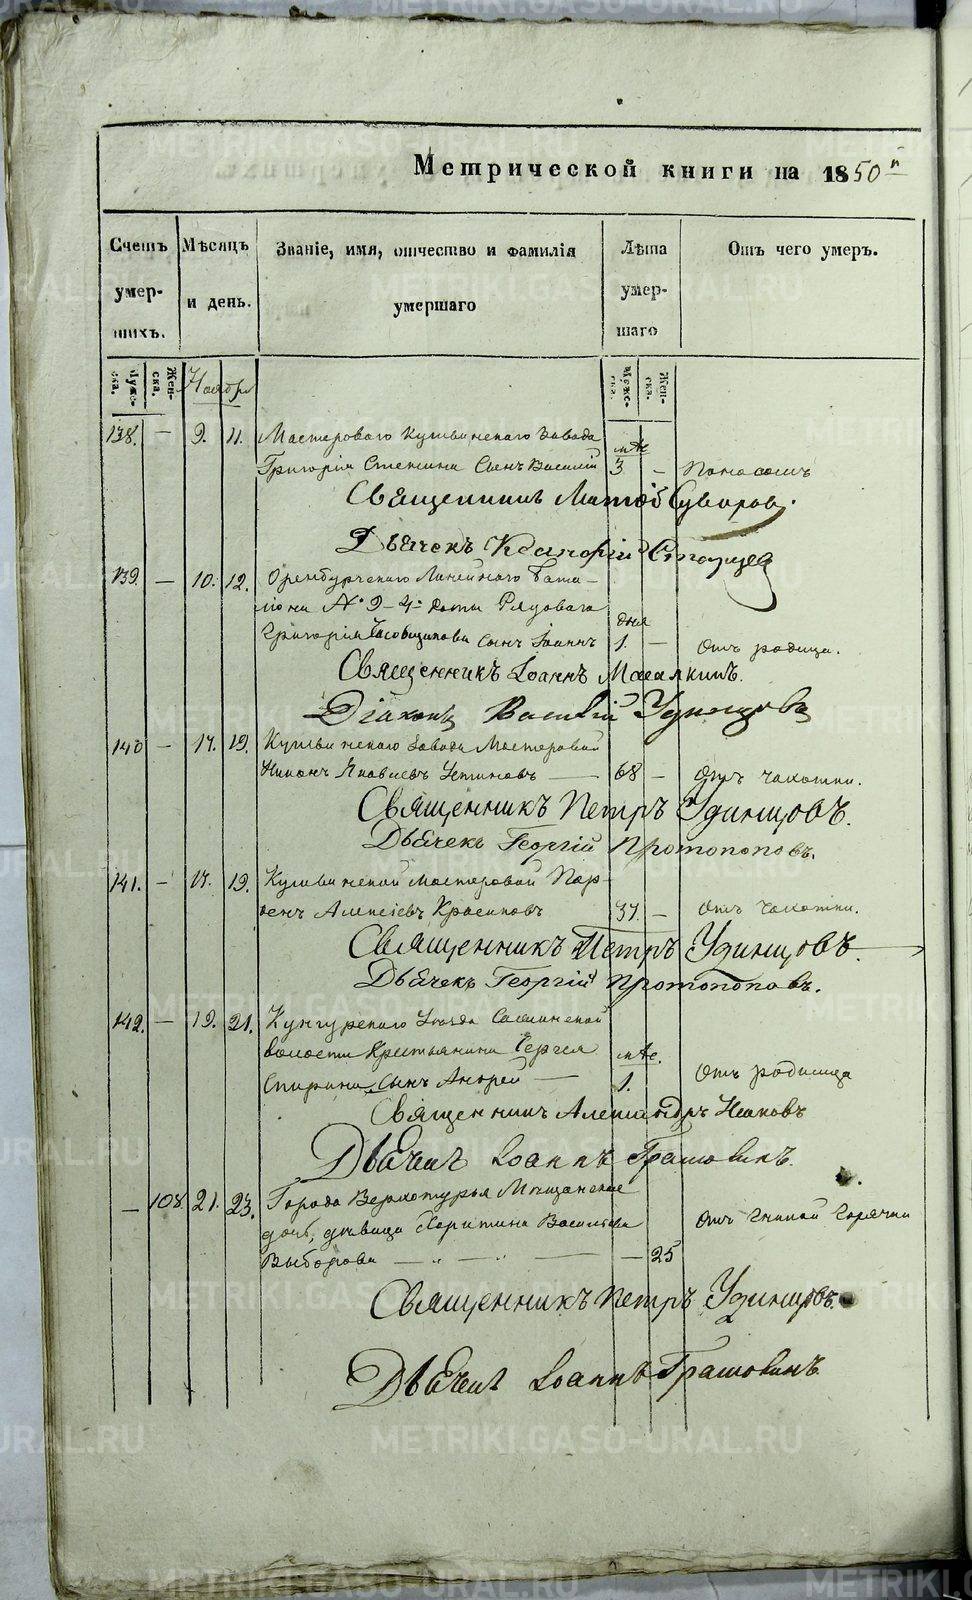 Метрической книги на 1850й
Счетъ умер- шихъ.
Мѣсяцъ и день.
Званіе, имя, отчество и фамилія умершаго
Лѣта умер- шаго
Отъ чего умеръ.
Муже- ска.
Жен- ска.
Ноябрь
Муже- ска.
Жен- ска.
138. — 9. 11. Мастероваго Кушвинскаго Завода мѣс
Григорія Степина Сынъ Василій 3 — Поносомъ
Священникъ Матѳій Суворовъ.
Дьячекъ
139. — 10. 12. Оренбургскаго Линейнаго Бата-
ліона № 9 - 4й роты Рядоваго дня
Григорія сынъ Іоаннъ 1. — Отъ родимца.
Священникъ Іоаннъ
Діаконъ Василій Удинцовъ
140 — 17. 19. Кушвинскаго Завода Мастеровой
Никонъ Яковлевъ Устиновъ — 68 — Отъ чахотки.
Священникъ Петръ Удинцовъ.
Дьячекъ Георгій Протопоповъ.
141. — 17. 19. Кушвинской мастеровой Пар-
ѳенъ Алексѣевъ 37. — Отъ чахотки.
Священникъ Петръ Удинцовъ
Дьячекъ Георгій Протопоповъ.
142. — 19. 21. Кунгурскаго Уѣзда
волости Крестьянина Сергея мѣс.
Спирина Сынъ Андрей — 1. Отъ родимца
Священникъ Александръ
Дьячекъ Іоаннъ
— 108 21. 23. Города Верхотурья Мѣщанская
дочь, дѣвица Харитина Васильева Отъ гнилой горячки
Выборова — „ — „ — — 25
Священникъ Петръ Удинцовъ.
Дьячекъ Іоаннъ
METRIKI.GASO-URAL.RU